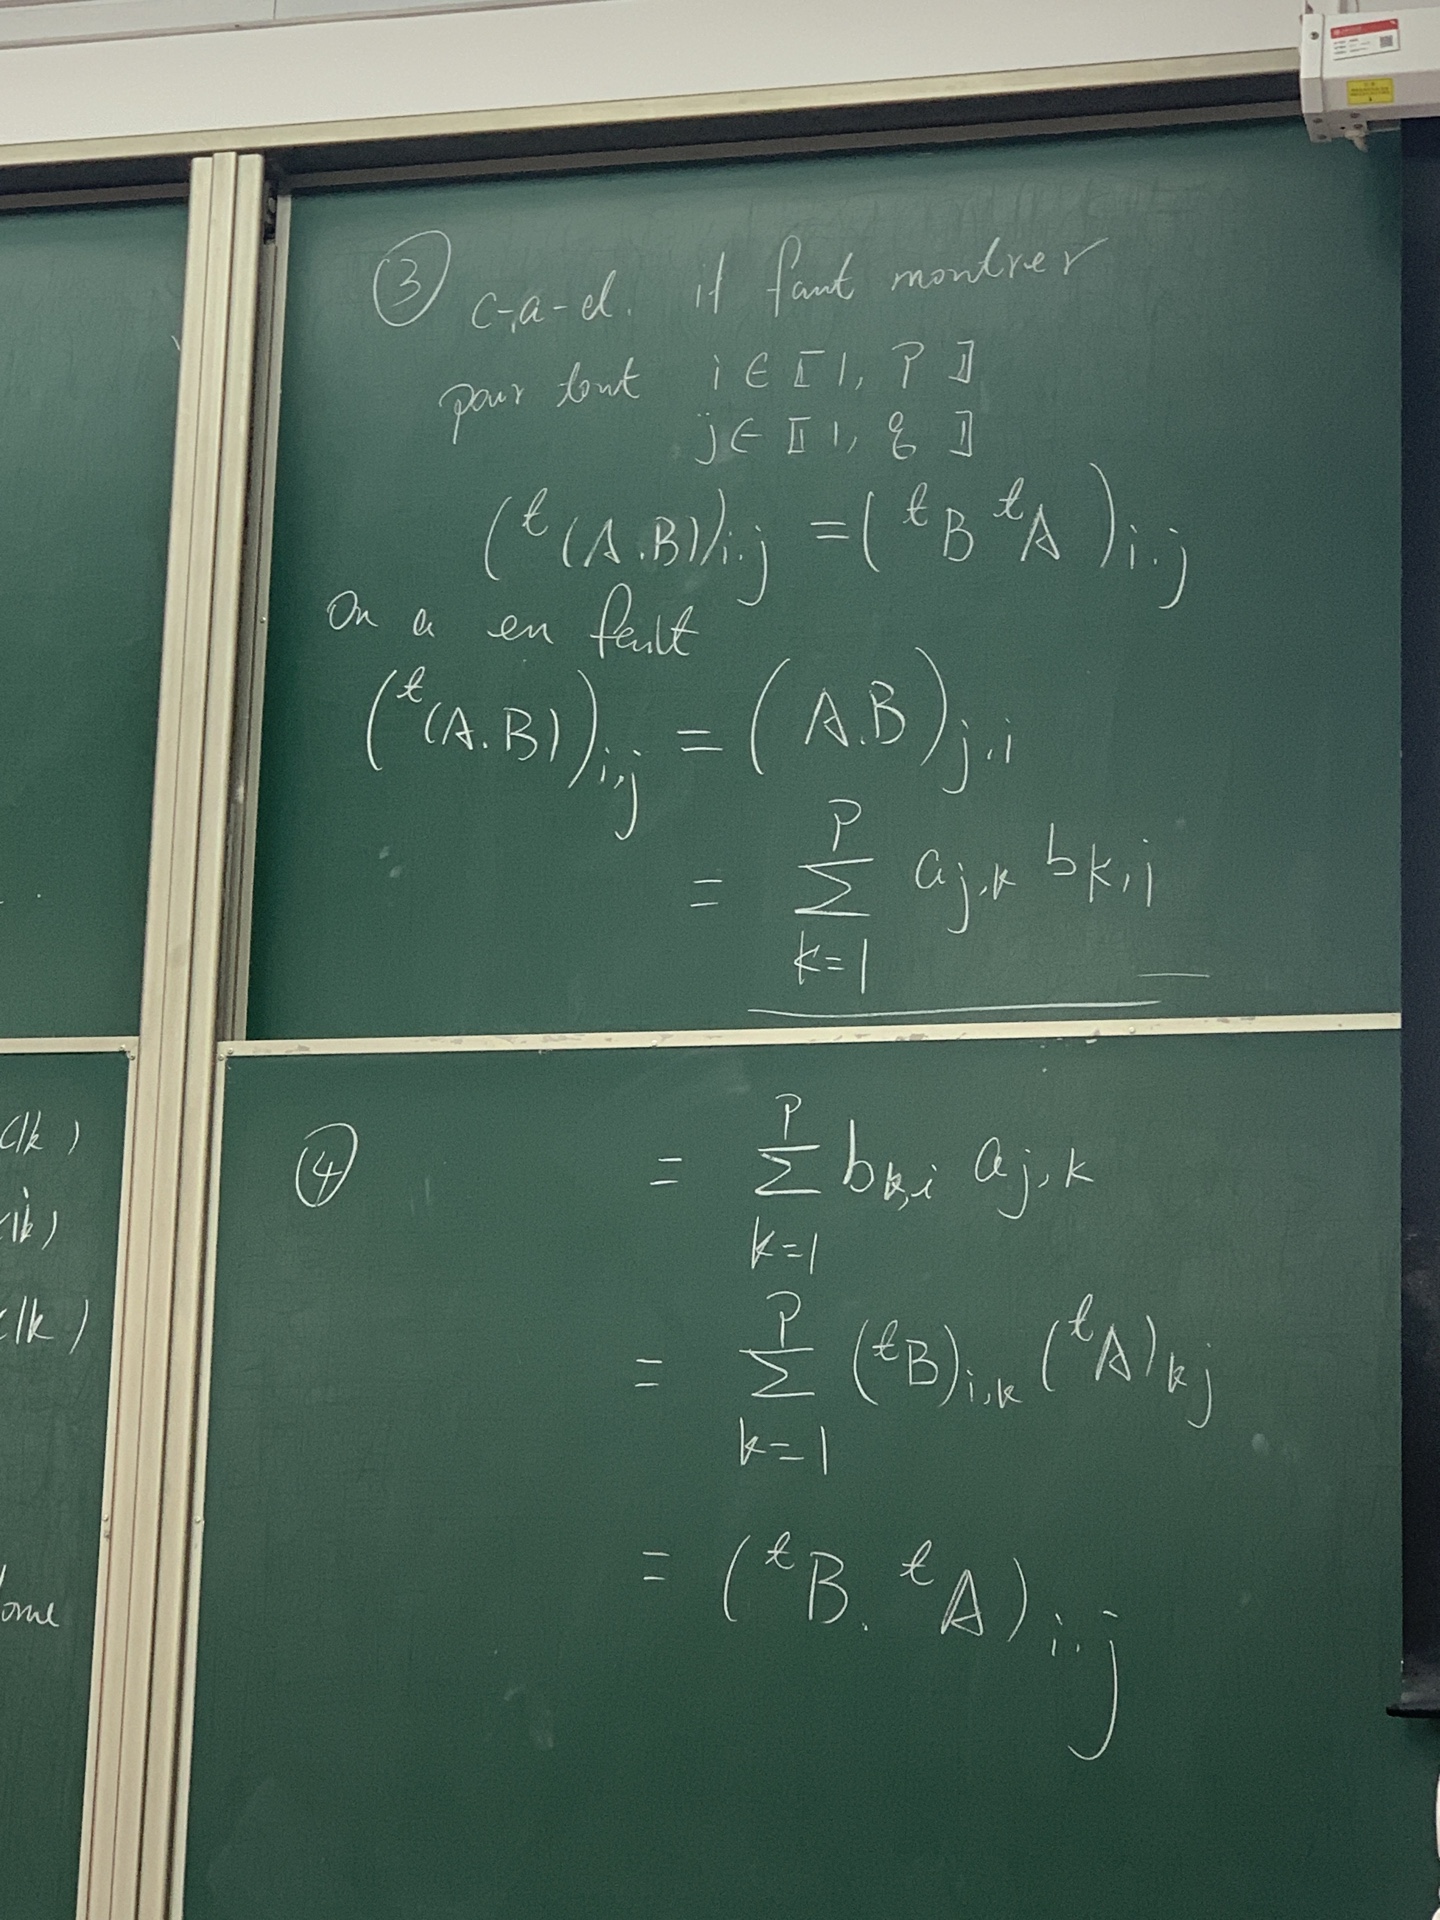 ③ c-à-d. il faut montrer
pour tout i ∈ ⟦1, P⟧
j ∈ ⟦1, q⟧
(ᵗ(A.B))i.j = (ᵗB ᵗA)i.j
On a en fait
(ᵗ(A.B))i,j = (A.B)j,i
= P∑k=1 aj,k bk,i
④ = P∑k=1 bk,i aj,k
= P∑k=1 (ᵗB)i,k (ᵗA)kj
= (ᵗB. ᵗA)i.j